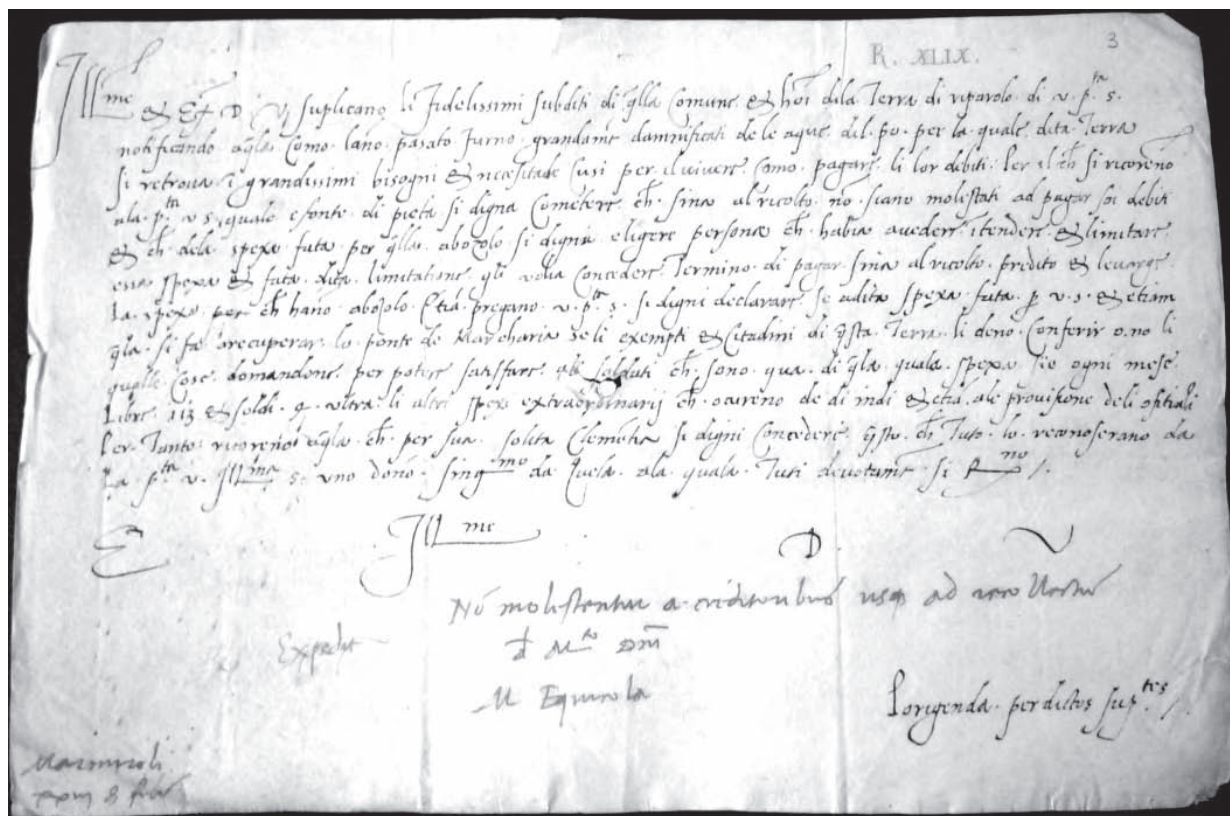 R. XLIX. 3
Ill.me & Ex. D. V. suplicano li fidelissimi subditi di qlla Comune & hoī dila Terra di riparolo di v. p.ta s.
notificando aqla como lano pasato furno grandamẽ damnificati de le aque dil po per la quale dita Terra
si retroua ĩ grandissimi bisogni & necesitade cusi per il viuere como pagare li lor debiti. Per il ch̃ si ricoreno
ala p.ta v s. quale e fonte di pieta si digna Cometere ch̃ sina al ricolto nõ siano molestati ad pagar soi debiti
& ch̃ dela spexa fata per qlla abozolo si digna eligere persona ch̃ habia avedere ĩtendere & limitare
essa spexa & fata limitatione qli volia Concedere Termino di pagar sina al ricolto predito & levarge
la spexa per ch̃ hano abozolo Etiã pregano v. p.ta s. si digni declarare se adita spexa fata p v. s. & etiam
qla si fa arecuperar lo ponte de Marcharia se li exempti & Citadini di qsta Terra li deno Conferir o no li
qualle cose domandone per potere satisfare ali soldati ch̃ sono qua di qla quala spexa sie ogni mese
Libre 113 & soldi 9 vltra li altri spexe extraordinarij ch̃ ocureno de di indi & etiã ale provisione deli ofitiali
Per Tanto ricoreno aqla ch̃ per sua solita Clemẽtia si digni Concedere qsto ch̃ Tuto lo reconoserano da
La p.ta v. Ill.ma s. vno dono sing.mo da quela ala quala Tuti devotamẽ si R.no /.
E Ill.me D. V
Nõ molestentur a creditoribus usq ad
Expedit
M Equicola
Porigenda per dictos sup.tes /.